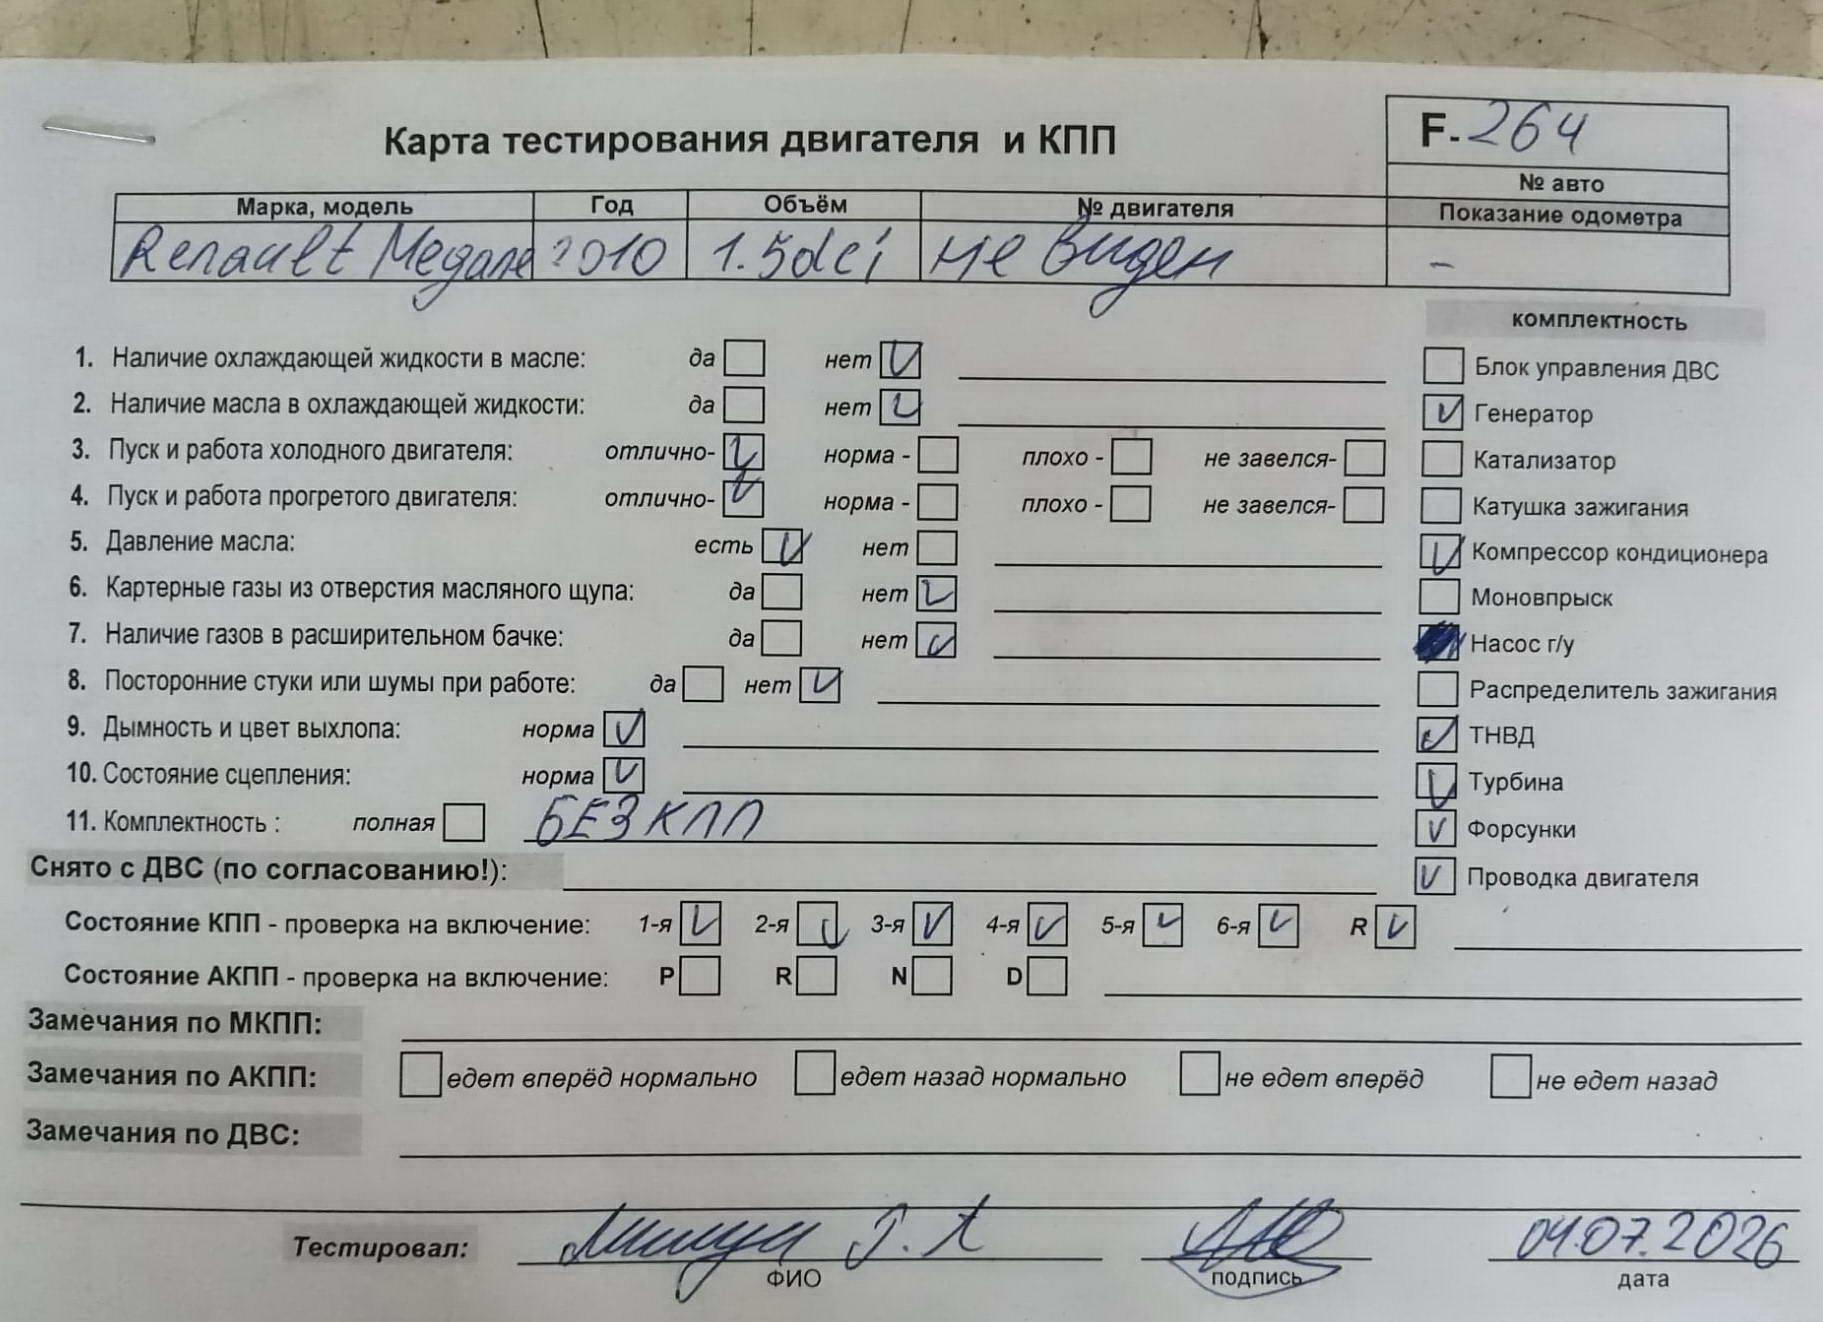 Карта тестирования двигателя и КПП
F-264
№ авто
Марка, модель Год Объём № двигателя Показание одометра
Renault Megane 2010 1.5dci не виден -
комплектность
1. Наличие охлаждающей жидкости в масле: да нет V
Блок управления ДВС
2. Наличие масла в охлаждающей жидкости: да нет V
V Генератор
3. Пуск и работа холодного двигателя: отлично- V норма - плохо - не завелся-
Катализатор
4. Пуск и работа прогретого двигателя: отлично- V норма - плохо - не завелся-
Катушка зажигания
5. Давление масла: есть V нет
V Компрессор кондиционера
6. Картерные газы из отверстия масляного щупа: да нет V
Моновпрыск
7. Наличие газов в расширительном бачке: да нет V
Насос г/у
8. Посторонние стуки или шумы при работе: да нет V
Распределитель зажигания
9. Дымность и цвет выхлопа: норма V
V ТНВД
10. Состояние сцепления: норма V
V Турбина
11. Комплектность : полная БЕЗ КПП
V Форсунки
Снято с ДВС (по согласованию!):
V Проводка двигателя
Состояние КПП - проверка на включение: 1-я V 2-я V 3-я V 4-я V 5-я V 6-я V R V
Состояние АКПП - проверка на включение: P R N D
Замечания по МКПП:
Замечания по АКПП: едет вперёд нормально едет назад нормально не едет вперёд не едет назад
Замечания по ДВС:
Тестировал: 04.07.2026
ФИО подпись дата